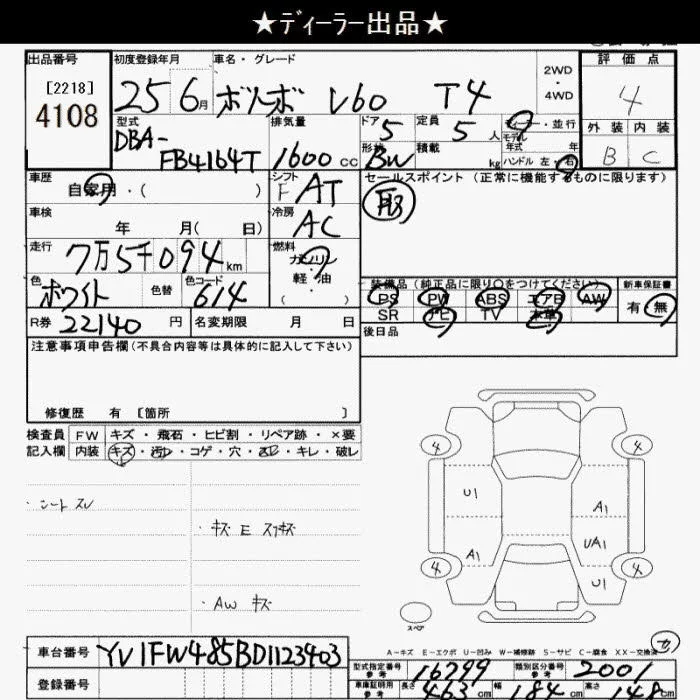 ★ディーラー出品★
出品番号 初度登録年月 車名・グレード 2WD・4WD 評価点
[2218]
4108 25 6月 ボルボ V60 T4 4
型式 排気量 ドア 定員 ディーラー・並行 外装 内装
DBA-FB4164T 1600cc 5 5人 モデル年式 年 B C
形状 BW 積載 kg ハンドル 左・右
車歴 自家用・( ) シフト F AT セールスポイント (正常に機能するものに限ります)
取
車検 年 月( 日) 冷房 AC
走行 7万5千094km 燃料 ガソリン・軽・油 ( ・ )
色 ホワイト 色替 色コード 614 装備品(純正品に限り○をつけてください) 新車保証書
PS PW ABS エアB AW 有・無
SR ナビ TV 本革
R券 22140円 名変期限 月 日 後日品
注意事項申告欄(不具合内容等は具体的に記入して下さい)
修復歴 有 [箇所 ]
検査員 FW キズ・飛石・ヒビ割・リペア跡・×要
記入欄 内装 キズ・汚レ・コゲ・穴・スレ・キレ・破レ
・シート スレ
・キズ E スリキズ
・AW キズ
4 4
U1 A1
A1 UA1
4 4
U1
スペア
A-キズ E-エクボ U-凹み W-補修跡 S-サビ C-腐食 XX-交換済
車台番号 YV1FW485BD1123403
型式指定番号 参考 16799 類別区分番号 参考 2001
登録番号 車庫証明用 参考 長さ 463cm 幅 184cm 高さ cm